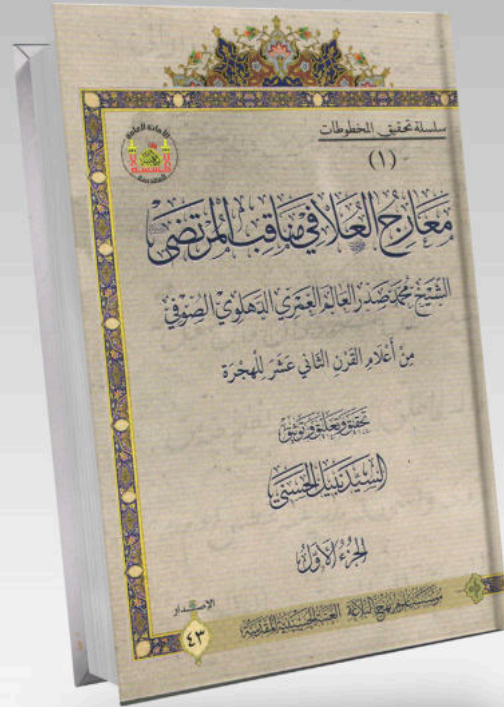 سلسلة تحقيق المخطوطات
(١)
معارج العلا في مناقب المرتضى
الشيخ محمد صدر العالم العمري الدهلوي الصوفي
من أعلام القرن الثاني عشر للهجرة
تحقيق وتعليق وتوثيق
السيد نبيل الحسني
الجزء الأول
الإصدار
٤٣
مؤسسة علوم نهج البلاغة العتبة الحسينية المقدسة